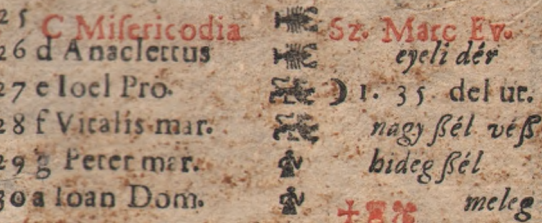 25 C Misericodia Sz. Marc Ev.
26 d Anaclettus eyeli dér
27 e Ioel Pro. ☽ 1. 35. del ut.
28 f Vitalis mar. nagy ßél véß
29 g Peter mar. hideg ßél
30 a Ioan Dom. meleg